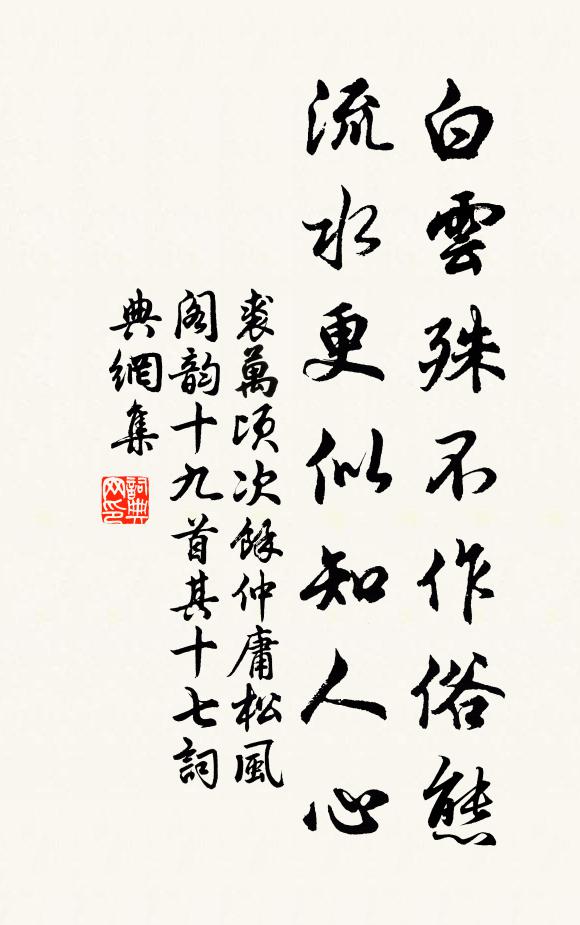 白雲殊不作俗態
流水更似知人心
裘萬頃次餘仲庸松風
閣韵十九首其十七詞
典網集
詞典网印